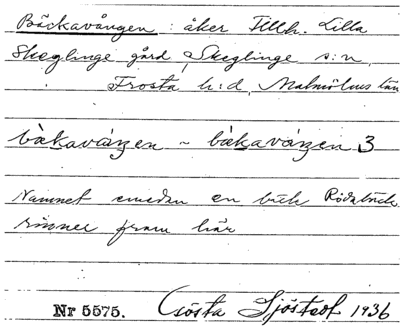 Bäckavången : åker Tillh. Lilla
Skeglinge gård, Skeglinge s:n,
Frosta h:d, Malmöhus län
bä̀kaváŋen ~ bä̀kaváŋen 3
Namnet emedan en bäck Rödabäck
rinner fram här
Nr 5575. Gösta Sjöstedt 1936